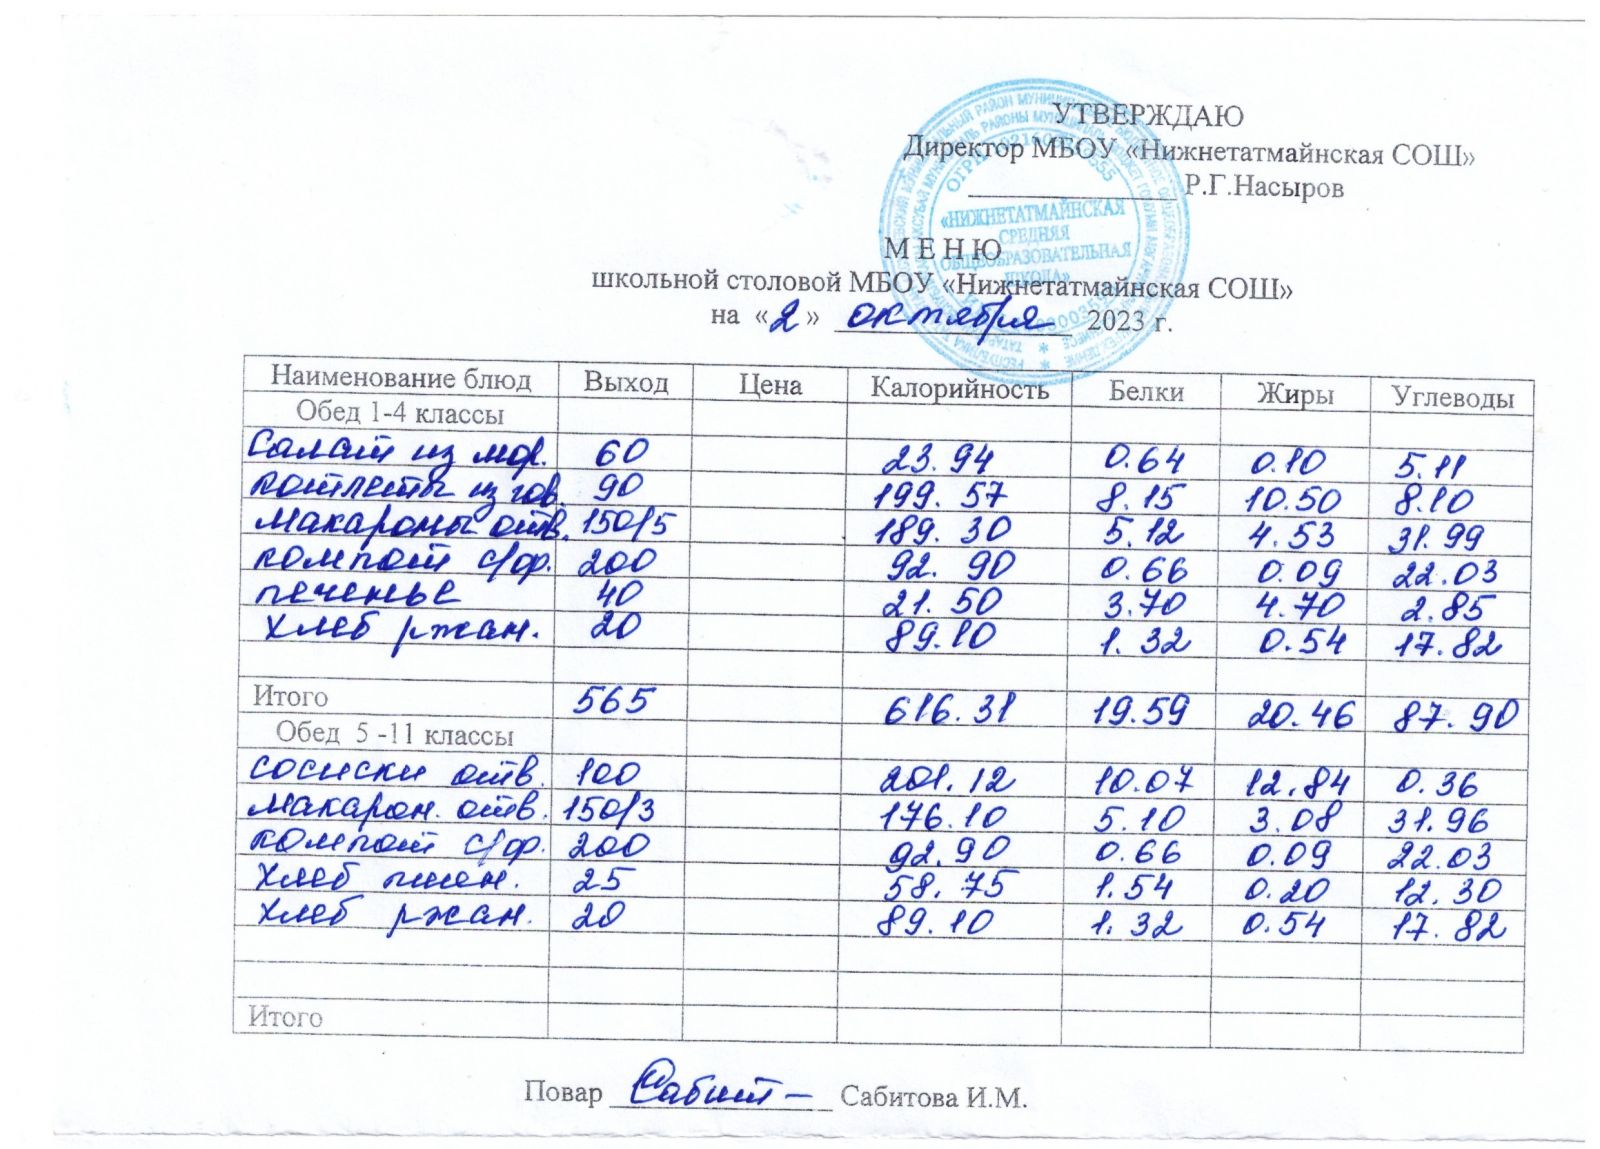 УТВЕРЖДАЮ
Директор МБОУ «Нижнетатмайнская СОШ»
Р.Г.Насыров
«НИЖНЕТАТМАЙНСКАЯ
СРЕДНЯЯ
ОБЩЕОБРАЗОВАТЕЛЬНАЯ
ШКОЛА»
М Е Н Ю
школьной столовой МБОУ «Нижнетатмайнская СОШ»
на «2» октября 2023 г.
Наименование блюд Выход Цена Калорийность Белки Жиры Углеводы
Обед 1-4 классы
Салат из мор. 60 23.94 0.64 0.10 5.11
котлеты из гов. 90 199.57 8.15 10.50 8.10
макароны отв. 150/5 189.30 5.12 4.53 31.99
компот с/фр. 200 92.90 0.66 0.09 22.03
печенье 40 21.50 3.70 4.70 2.85
хлеб ржан. 20 89.10 1.32 0.54 17.82
Итого 565 616.31 19.59 20.46 87.90
Обед 5 -11 классы
сосиски отв. 100 201.12 10.07 12.84 0.36
макарон. отв. 150/3 176.10 5.10 3.08 31.96
компот с/фр. 200 92.90 0.66 0.09 22.03
хлеб пшен. 25 58.75 1.54 0.20 12.30
хлеб ржан. 20 89.10 1.32 0.54 17.82
Итого
Повар Сабит Сабитова И.М.